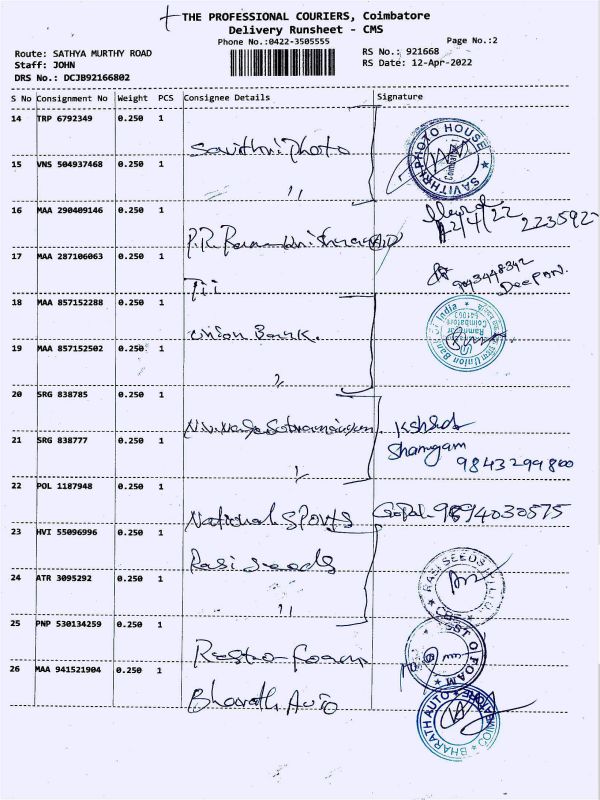 THE PROFESSIONAL COURIERS, Coimbatore
Delivery Runsheet - CMS
Phone No.:0422-3505555
Page No.:2
Route: SATHYA MURTHY ROAD
RS No.: 921668
Staff: JOHN
RS Date: 12-Apr-2022
DRS No.: DCJB92166802
S No Consignment No Weight PCS Consignee Details Signature
14 TRP 6792349 0.250 1 Savithri Photo
SAVITHRI PHOTO HOUSE Coimbatore
15 VNS 504937468 0.250 1 ,,
16 MAA 290409146 0.250 1 P.R.
12/4/22 223592
17 MAA 287106063 0.250 1 Tii
9043448342
DEEPAN.
18 MAA 857152288 0.250 1 Union Bank.
Union Bank Of India Ramnagar Coimbatore 641063
19 MAA 857152502 0.250 1 ,,
20 SRG 838785 0.250 1 N.V.
21 SRG 838777 0.250 1 ,,
Shanmgam
9843299800
22 POL 1187948 0.250 1 National Sports Gopal. 9894030575
23 HVI 55096996 0.250 1 Rasi seeds
RASI SEEDS CBE
24 ATR 3095292 0.250 1 ,,
25 PNP 530134259 0.250 1 Resto-foam
26 MAA 941521904 0.250 1 Bharath Auto
BHARATH AUTO COIMBATORE